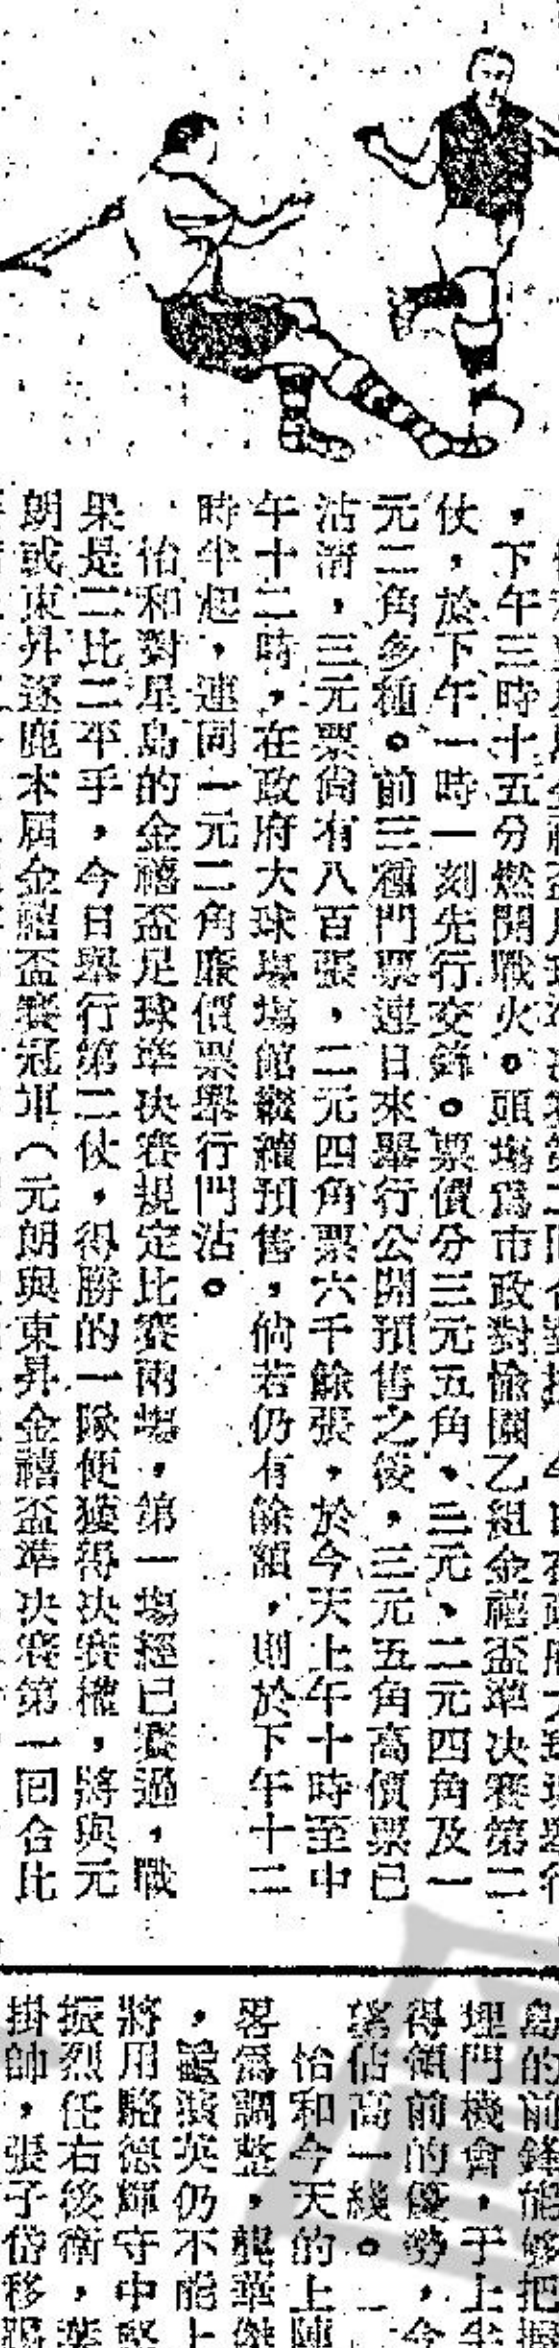 ，下午三時十五分燃開戰火。頭場爲市政對愉園乙組金禧盃準決賽第二
仗，於下午一時一刻先行交鋒。票價分三元五角、三元、二元四角及一
元二角多種。前三種門票連日來舉行公開預售之後，三元五角高價票已
沽清，三元票尙有八百張，二元四角票六千餘張，於今天上午十時至中
午十二時，在政府大球場塲館繼續預售，倘若仍有餘額，則於下午十二
時半起，連同一元二角廉價票舉行門沽。
怡和對星島的金禧盃足球準決賽規定比賽兩塲，第一塲經已賽過，戰
果是二比二平手，今日舉行第二仗，得勝的一隊便獲得決賽權，將與元
朗或東昇逐鹿本屆金禧盃賽冠軍（元朗與東昇金禧盃準決賽第一回合比
島的前鋒能够把握
埋門機會，于上半
得領前的優勢，今
佔高一綫。
怡和今天的上陣
畧爲調整，
英仍不能上
將用駱德輝守中堅
振烈任右後衛，葉
掛帥，張子岱移